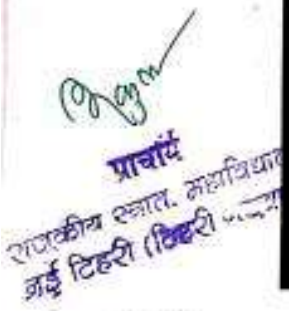 प्राचार्य
राजकीय स्नात. महाविद्याल
नई टिहरी (टिहरी